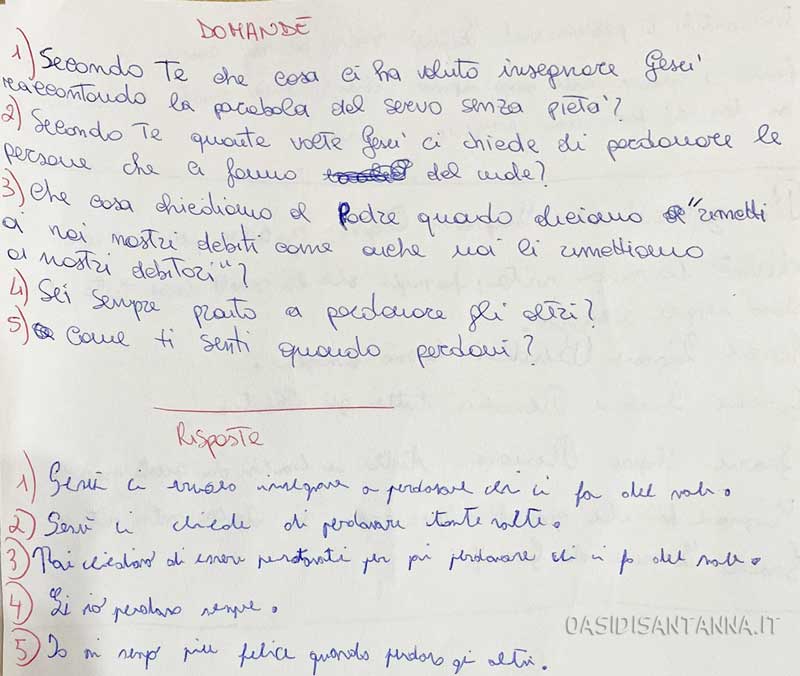 DOMANDE
1) Secondo Te che cosa ci ha voluto insegnare Gesu'
raccontando la parabola del servo senza pieta'?
2) Secondo Te quante volte Gesu' ci chiede di perdonare le
persone che ci fanno del male?
3) Che cosa chiediamo al Padre quando diciamo "rimetti
a noi nostri debiti come anche noi li rimettiamo
ai nostri debitori"?
4) Sei sempre pronto a perdonare gli altri?
5) Come ti senti quando perdoni?
Risposte
1) Gesù ci insegnare a perdonare chi ci fa del male.
2) Gesù ci chiede di perdonare tante volte.
3) Noi di essere per poi perdonare chi ci fa del male.
4) Si io perdono sempre.
5) Io mi più felice quando perdono gli altri.
OASIDISANTANNA.IT